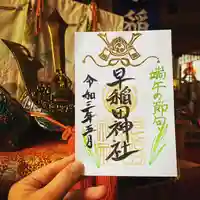 端午の節句
早稲田神社
令和三年五月